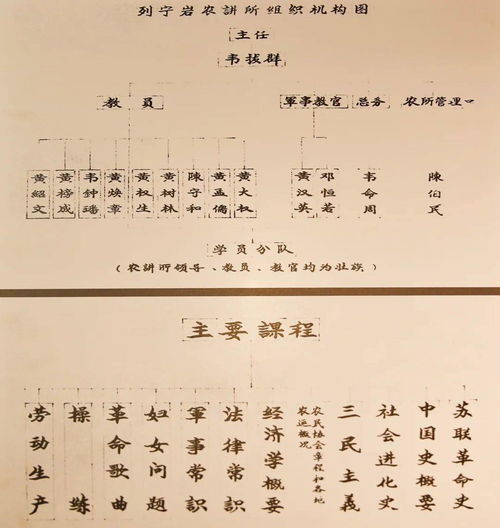 列宁岩农講所组织机构图
主任
韦拔群
教员
軍事教官
总务
农所管理
黄紹文
黄榜成
韦钟璠
黄焕章
黄权生
黄树林
陳守和
黄孟儔
黄大权
黄汉英
邓恒若
韦命周
陳伯民
学员分队
（农講所领导、教员、教官均为壮族）
主要課程
劳动生产
操练
革命歌曲
妇女问题
軍事常識
法律常識
经济学概要
农民协会章程和各地农运概况
三民主義
社会進化史
中国史概要
苏联革命史